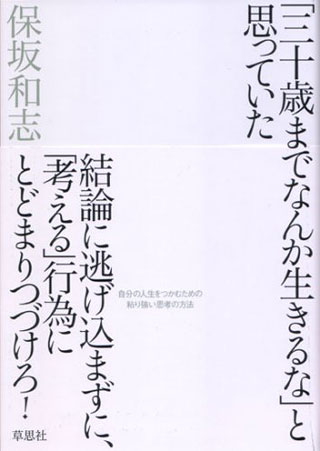 「三十歳までなんか生きるな」と
思っていた
保坂和志
結論に逃げ込まずに、
「考える」行為に
とどまりつづけろ！
自分の人生をつかむための
粘り強い思考の方法
草思社